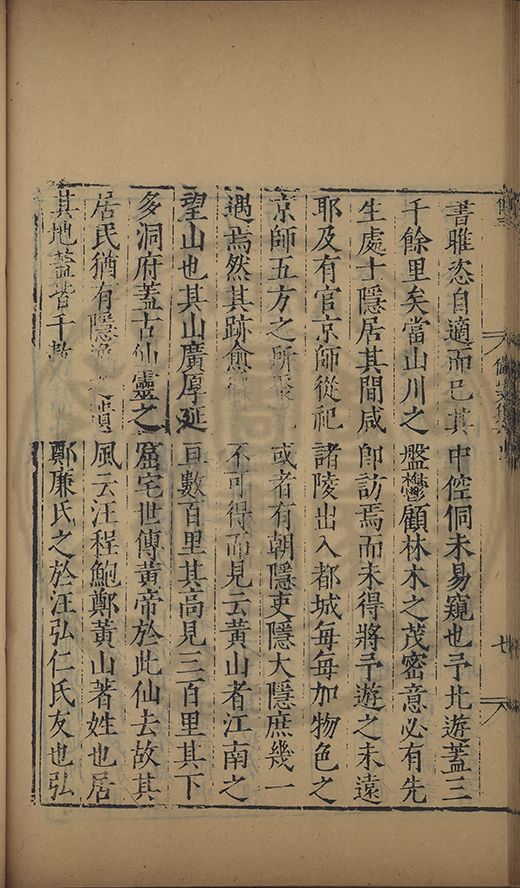 書雅恣自適而已其中倥侗未易窺也予北遊蓋三
千餘里矣當山川之盤鬱顧林木之茂密意必有先
生處士隱居其間咸卽訪焉而未得將予遊之未遠
耶及有官京師從祀諸陵出入都城每每加物色之
京師五方之所聚或者有朝隱吏隱大隱庶幾一
遇焉然其跡愈不可得而見云黃山者江南之
望山也其山廣厚延亘數百里其高見三百里其下
多洞府蓋古仙靈之窟宅世傳黃帝於此仙去故其
居民猶有隱之遺風云汪程鮑鄭黃山著姓也居
其地蓋皆千鄭廉氏之於汪弘仁氏友也弘
七